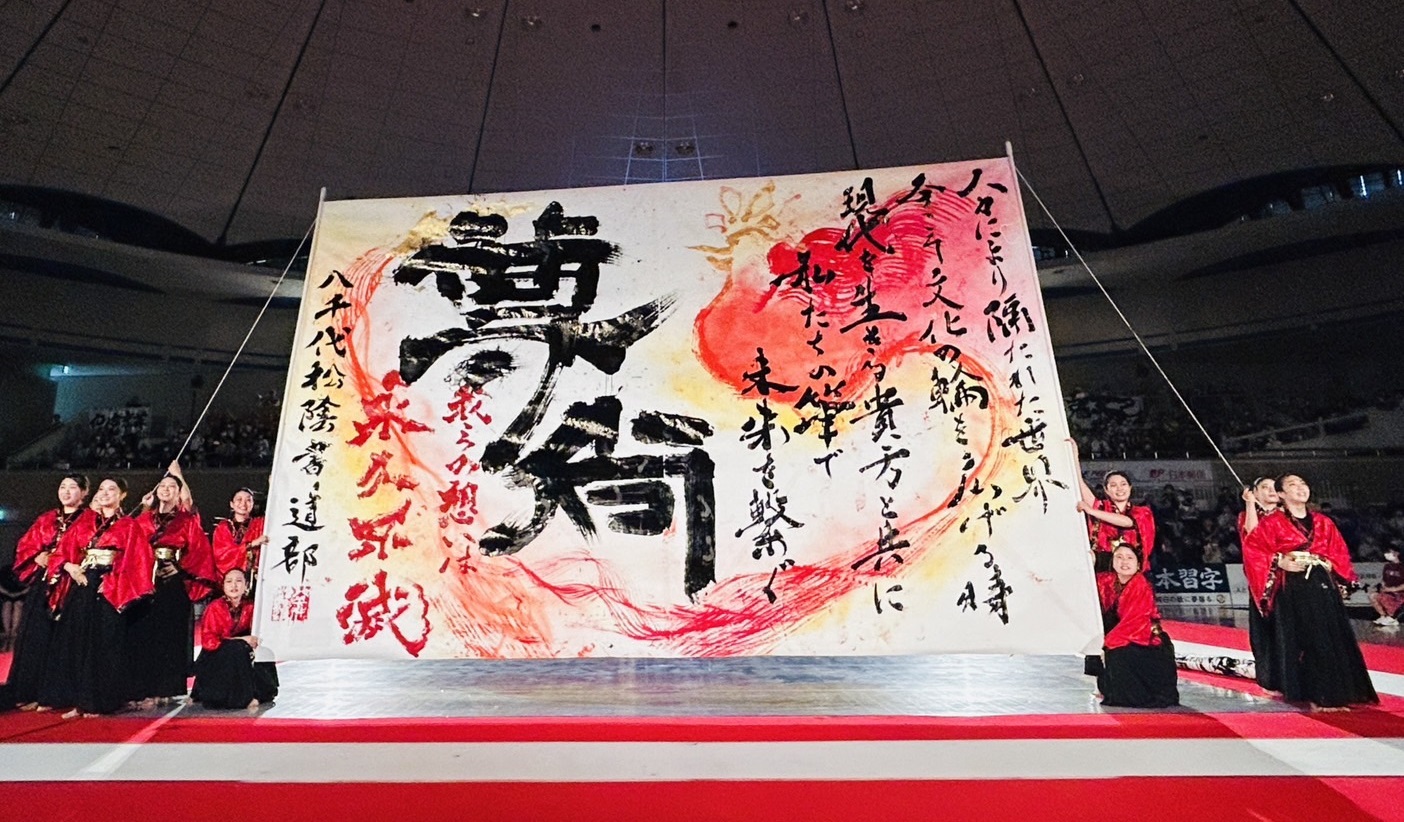 人々により隔たれた世界
今こそ文化の輪を
時
現代を生きる貴方と共に
私たちの筆で
未来を繋ぐ
我らの想いは
永久不滅
八千代松陰書道部
本習字